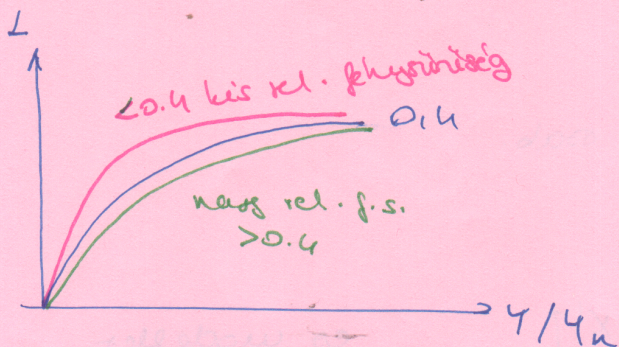 L
<0.4 kis rel. fénysűrűség
0,4
nagy rel. f.s.
>0.4
Y/Yn